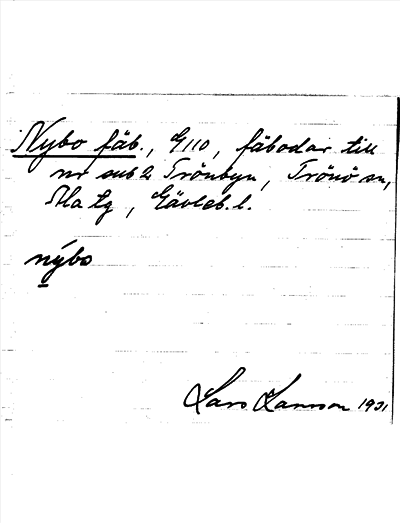 Nybo fäb., G110, fäbodar till
nr sub 2 Trönbyn, Trönö sn,
Ala tg, Gävleb. l.
nýbo
Lars Larsson 1931